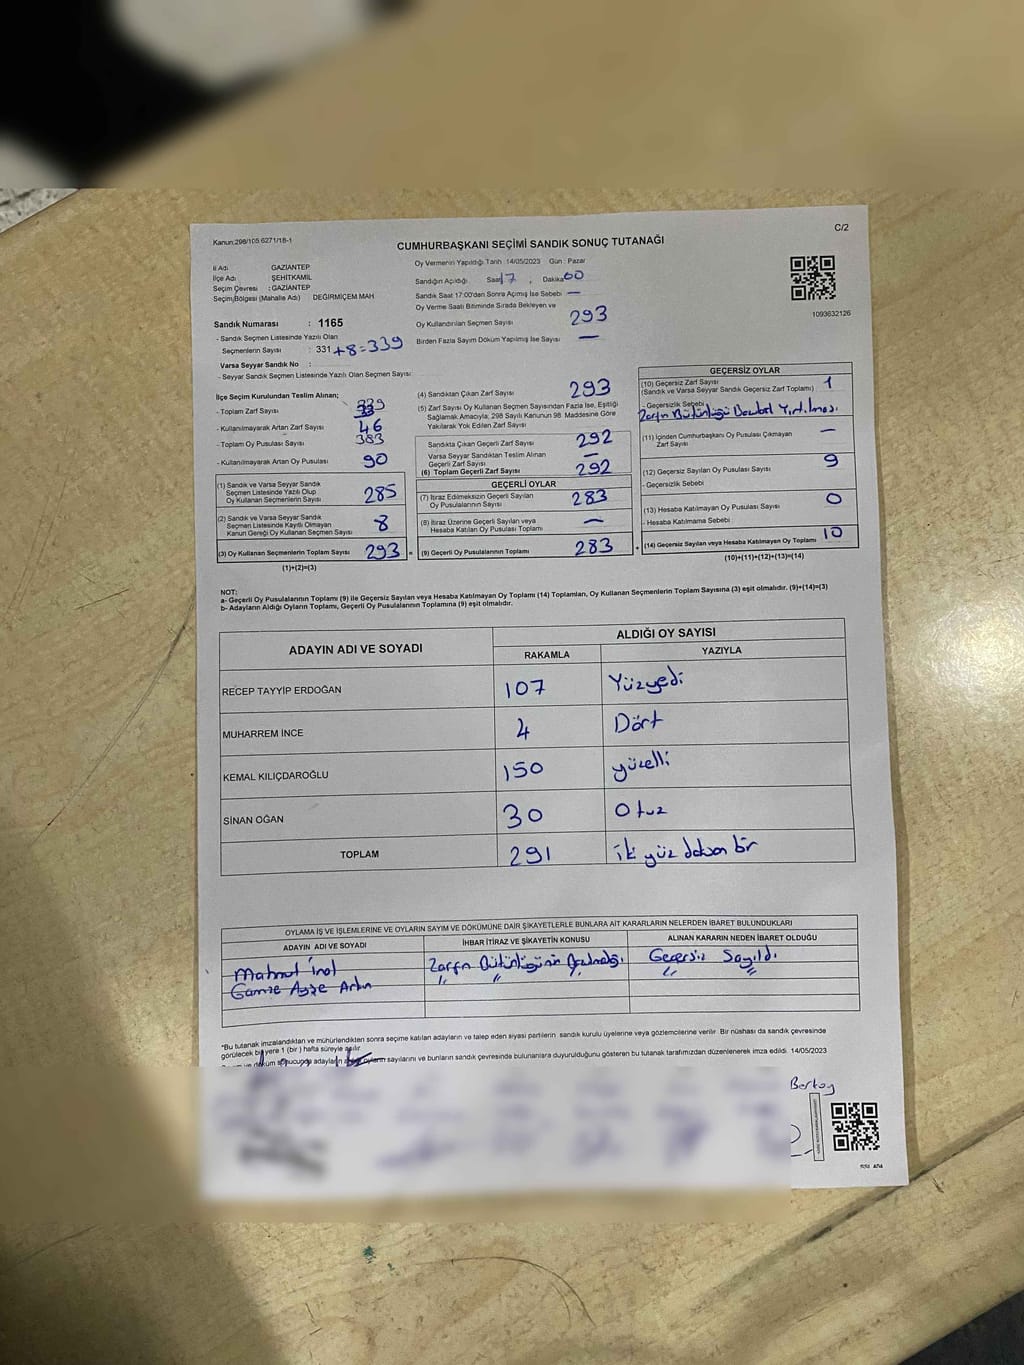 Kanun:298/105 6271/18-1
C/2
CUMHURBAŞKANI SEÇİMİ SANDIK SONUÇ TUTANAĞI
İl Adı GAZİANTEP
İlçe Adı ŞEHİTKAMİL
Seçim Çevresi : GAZİANTEP
Seçim Bölgesi (Mahalle Adı) DEĞİRMİÇEM MAH
Sandık Numarası : 1165
- Sandık Seçmen Listesinde Yazılı Olan
Seçmenlerin Sayısı : 331 +8=339
Varsa Seyyar Sandık No :
- Seyyar Sandık Seçmen Listesinde Yazılı Olan Seçmen Sayısı:
Oy Vermenin Yapıldığı Tarih :14/05/2023 Gün : Pazar
Sandığın Açıldığı Saat 17 , Dakika 00
Sandık Saat 17:00'dan Sonra Açımış İse Sebebi —
Oy Verme Saati Bitiminde Sırada Bekleyen ve
Oy Kullandırılan Seçmen Sayısı 293
Birden Fazla Sayım Döküm Yapılmış İse Sayısı —
1093632126
İlçe Seçim Kurulundan Teslim Alınan;
- Toplam Zarf Sayısı 339
- Kullanılmayarak Artan Zarf Sayısı 46
- Toplam Oy Pusulası Sayısı 383
- Kullanılmayarak Artan Oy Pusulası 90
(1) Sandık ve Varsa Seyyar Sandık
Seçmen Listesinde Yazılı Olup
Oy Kullanan Seçmenlerin Sayısı 285
(2) Sandık ve Varsa Seyyar Sandık
Seçmen Listesinde Kayıtlı Olmayan
Kanun Gereği Oy Kullanan Seçmen Sayısı 8
(3) Oy Kullanan Seçmenlerin Toplam Sayısı 293 =
(1)+(2)=(3)
(4) Sandıktan Çıkan Zarf Sayısı 293
(5) Zarf Sayısı Oy Kullanan Seçmen Sayısından Fazla İse, Eşitliği
Sağlamak Amacıyla, 298 Sayılı Kanunun 98. Maddesine Göre
Yakılarak Yok Edilen Zarf Sayısı
Sandıkta Çıkan Geçerli Zarf Sayısı 292
Varsa Seyyar Sandıktan Teslim Alınan
Geçerli Zarf Sayısı —
(6) Toplam Geçerli Zarf Sayısı 292
GEÇERLİ OYLAR
(7) İtiraz Edilmeksizin Geçerli Sayılan
Oy Pusulalarının Sayısı 283
(8) İtiraz Üzerine Geçerli Sayılan veya
Hesaba Katılan Oy Pusulası Toplamı —
(9) Geçerli Oy Pusulalarının Toplamı 283 +
GEÇERSİZ OYLAR
(10) Geçersiz Zarf Sayısı 1
(Sandık ve Varsa Seyyar Sandık Geçersiz Zarf Toplamı)
- Geçersizlik Sebebi
Zarfın Bütünlüğü Yırtılması
(11) İçinden Cumhurbaşkanı Oy Pusulası Çıkmayan
Zarf Sayısı —
(12) Geçersiz Sayılan Oy Pusulası Sayısı 9
- Geçersizlik Sebebi
(13) Hesaba Katılmayan Oy Pusulası Sayısı 0
- Hesaba Katılmama Sebebi
(14) Geçersiz Sayılan veya Hesaba Katılmayan Oy Toplamı 10
(10)+(11)+(12)+(13)=(14)
NOT:
a- Geçerli Oy Pusulalarının Toplamı (9) ile Geçersiz Sayılan veya Hesaba Katılmayan Oy Toplamı (14) Toplamları, Oy Kullanan Seçmenlerin Toplam Sayısına (3) eşit olmalıdır. (9)+(14)=(3)
b- Adayların Aldığı Oyların Toplamı, Geçerli Oy Pusulalarının Toplamına (9) eşit olmalıdır.
ADAYIN ADI VE SOYADI
ALDIĞI OY SAYISI
RAKAMLA YAZIYLA
RECEP TAYYİP ERDOĞAN 107 Yüzyedi
MUHARREM İNCE 4 Dört
KEMAL KILIÇDAROĞLU 150 yüzelli
SİNAN OĞAN 30 Otuz
TOPLAM 291 iki yüz doksan bir
OYLAMA İŞ VE İŞLEMLERİNE VE OYLARIN SAYIM VE DÖKÜMÜNE DAİR ŞİKAYETLERLE BUNLARA AİT KARARLARIN NELERDEN İBARET BULUNDUKLARI
ADAYIN ADI VE SOYADI İHBAR İTİRAZ VE ŞİKAYETİN KONUSU ALINAN KARARIN NEDEN İBARET OLDUĞU
Mahmut İnal Zarfın Bütünlüğünün Geçersiz Sayıldı
Gamze Ayşe " " " "
*Bu tutanak imzalandıktan ve mühürlendikten sonra seçime katılan adayların ve talep eden siyasi partilerin sandık kurulu üyelerine veya gözlemcilerine verilir. Bir nüshası da sandık çevresinde
görülecek bir yere 1 (bir) hafta süreyle asılır.
döküm sonucunda adayların oyların sayılarını ve bunların sandık çevresinde bulunanlara duyurulduğunu gösteren bu tutanak tarafımızdan düzenlenerek imza edildi. 14/05/2023